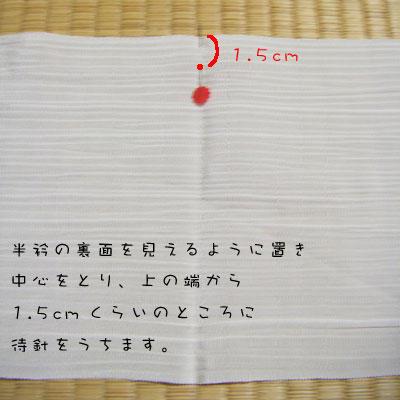 1.5cm
半衿の裏面を見えるように置き
中心をとり、上の端から
1.5cmくらいのところに
待針をうちます。